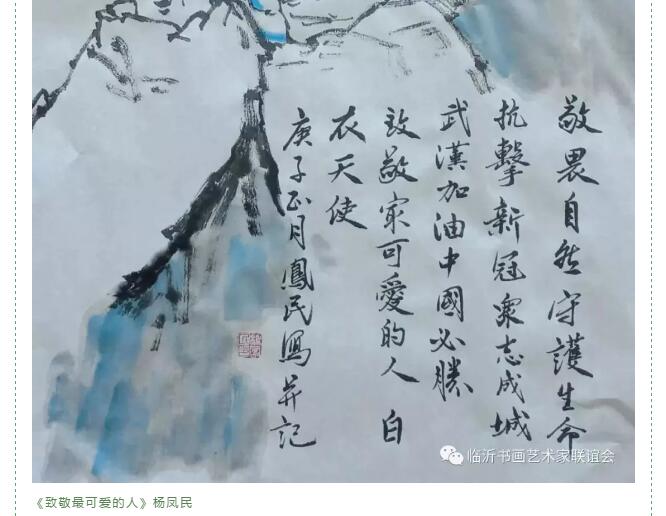 敬畏自然守護生命
抗擊新冠衆志成城
武漢加油中國必勝
致敬冣可愛的人 白
衣天使
庚子正月鳳民寫并記
临沂书画艺术家联谊会
《致敬最可爱的人》杨凤民